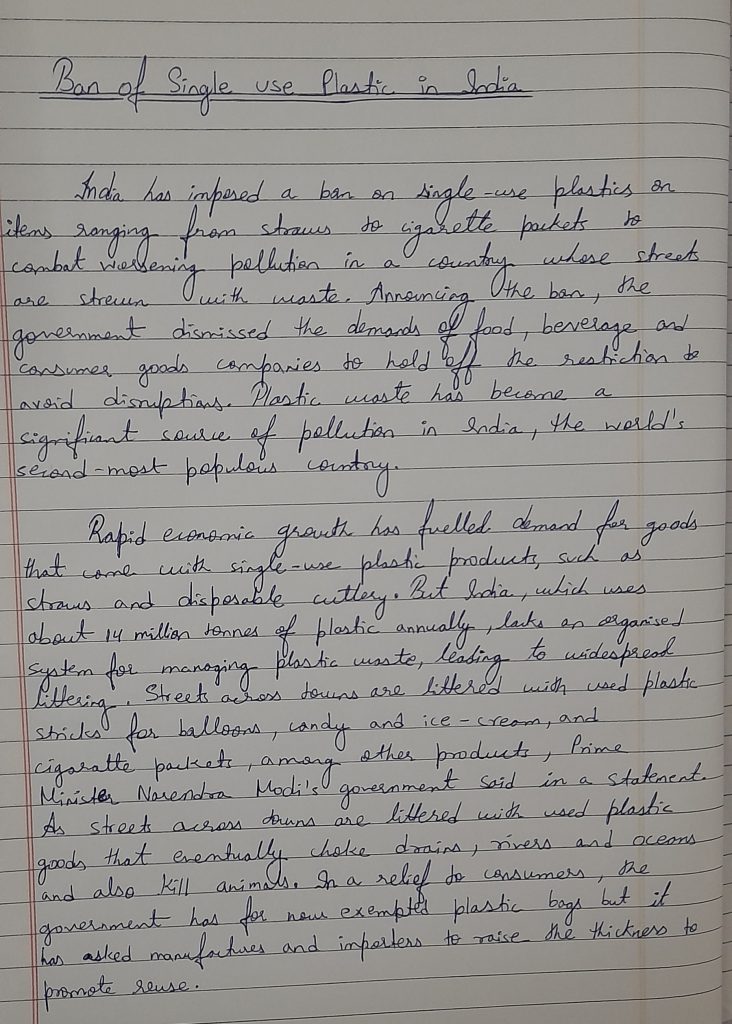 Ban of Single use Plastic in India
India has imposed a ban on single-use plastics on
items ranging from straws to cigarette packets to
combat worsening pollution in a country whose streets
are strewn with waste. Announcing the ban, the
government dismissed the demands of food, beverage and
consumer goods companies to hold off the restriction to
avoid disruptions. Plastic waste has become a
significant source of pollution in India, the world's
second-most populous country.
Rapid economic growth has fuelled demand for goods
that come with single-use plastic products, such as
straws and disposable cuttlery. But India, which uses
about 14 million tonnes of plastic annually, lacks an organised
system for managing plastic waste, leading to widespread
littering. Streets across towns are littered with used plastic
stricks for balloons, candy and ice-cream, and
cigaratte packets, among other products, Prime
Minister Narendra Modi's government said in a statement.
As streets across towns are littered with used plastic
goods that eventually choke drains, rivers and oceans
and also kill animals. In a relief to consumers, the
government has for now exempted plastic bags but it
has asked manufactures and importers to raise the thickness to
promote reuse.